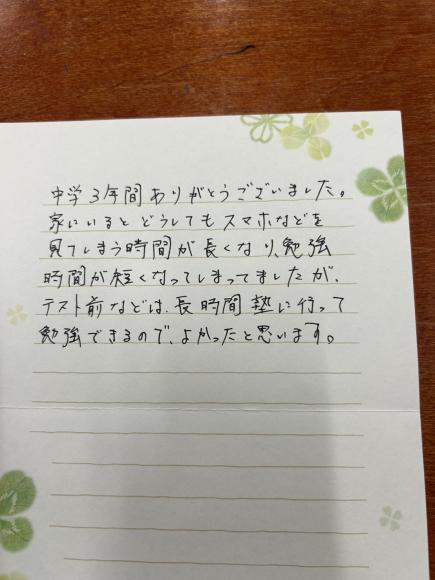 中学3年間ありがとうございました。
家にいるとどうしてもスマホなどを
見てしまう時間が長くなり、勉強
時間が短くなってしまってましたが、
テスト前などは、長時間塾に行って
勉強できるので、よかったと思います。